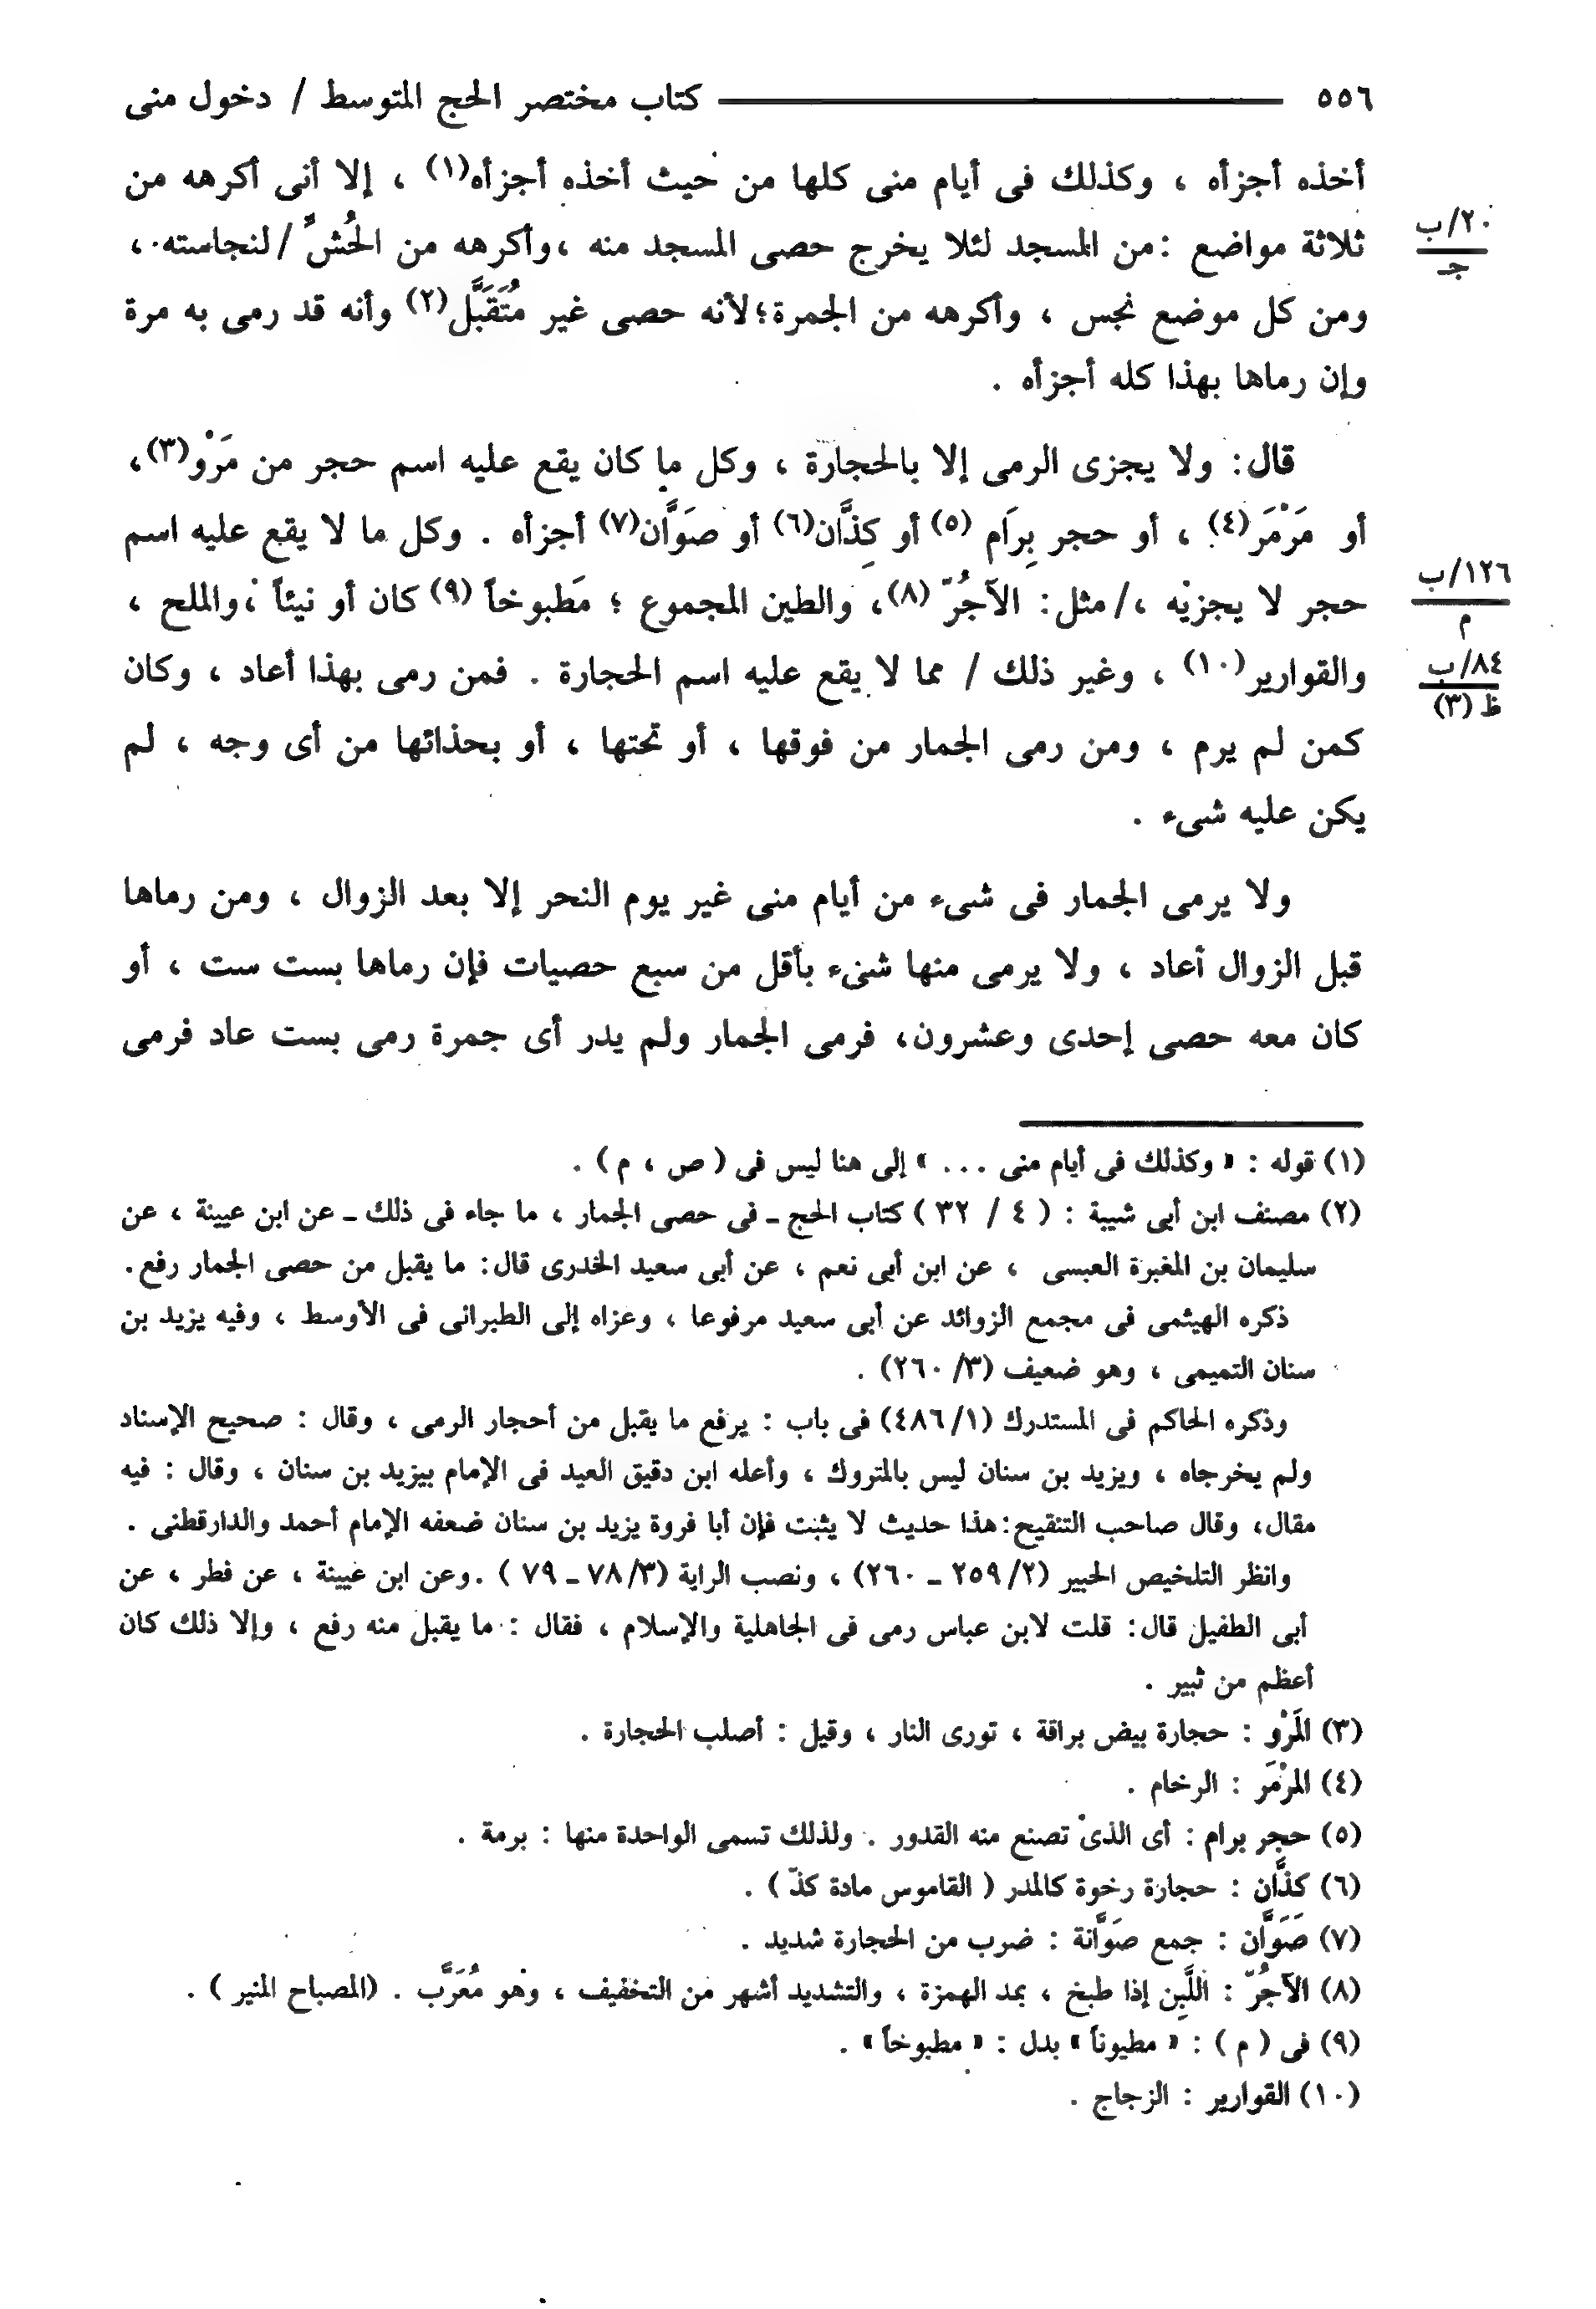 ٥٥٦ كتاب مختصر الحج المتوسط / دخول منى
أخذه أجزأه ، وكذلك فى أيام منى كلها من حيث أخذه أجزأه(١) ، إلا أنى أكرهه من
ثلاثة مواضع : من المسجد لئلا يخرج حصى المسجد منه ، وأكرهه من الحُشِّ / لنجاسته ،
٢٠/ب
جـ
ومن كل موضع نجس ، وأكرهه من الجمرة؛ لأنه حصى غير مُتَقَبَّل(٢) وأنه قد رمى به مرة
وإن رماها بهذا كله أجزأه .
قال : ولا يجزى الرمى إلا بالحجارة ، وكل ما كان يقع عليه اسم حجر من مَرْو(٣)،
أو مَرْمَر(٤) ، أو حجر بِرَام (٥) أو كِذَّان(٦) أو صَوَّان(٧) أجزأه . وكل ما لا يقع عليه اسم
حجر لا يجزيه ،/ مثل : الآجُرّ (٨)، والطين المجموع ؛ مَطبوخاً (٩) كان أو نيئاً ،والملح ،
١٢٦/ب
م
والقوارير(١٠) ، وغير ذلك / مما لا يقع عليه اسم الحجارة . فمن رمى بهذا أعاد ، وكان
٨٤/ب
ظ (٣)
كمن لم يرم ، ومن رمى الجمار من فوقها ، أو تحتها ، أو بحذائها من أى وجه ، لم
يكن عليه شىء .
ولا يرمى الجمار فى شىء من أيام منى غير يوم النحر إلا بعد الزوال ، ومن رماها
قبل الزوال أعاد ، ولا يرمى منها شىء بأقل من سبع حصيات فإن رماها بست ست ، أو
كان معه حصى إحدى وعشرون، فرمى الجمار ولم يدر أى جمرة رمى بست عاد فرمى
(١) قوله : « وكذلك فى أيام منى ... » إلى هنا ليس فى ( ص ، م ) .
(٢) مصنف ابن أبى شيبة : ( ٤ / ٣٢ ) كتاب الحج ـ فى حصى الجمار ، ما جاء فى ذلك ـ عن ابن عيينة ، عن
سليمان بن المغبرة العبسى ، عن ابن أبى نعم ، عن أبى سعيد الخدرى قال : ما يقبل من حصى الجمار رفع .
ذكره الهيثمى فى مجمع الزوائد عن أبى سعيد مرفوعا ، وعزاه إلى الطبرانى فى الأوسط ، وفيه يزيد بن
سنان التميمى ، وهو ضعيف (٣/ ٢٦٠) .
وذكره الحاكم فى المستدرك (١/ ٤٨٦) فى باب : يرفع ما يقبل من أحجار الرمى ، وقال : صحيح الإسناد
ولم يخرجاه ، ويزيد بن سنان ليس بالمتروك ، وأعله ابن دقيق العيد فى الإمام بيزيد بن سنان ، وقال : فيه
مقال، وقال صاحب التنقيح : هذا حديث لا يثبت فإن أبا فروة يزيد بن سنان ضعفه الإمام أحمد والدارقطنى .
وانظر التلخيص الحبير (٢/ ٢٥٩ ـ ٢٦٠) ، ونصب الراية (٣/ ٧٨ ـ ٧٩ ) . وعن ابن عيينة ، عن فطر ، عن
أبى الطفيل قال : قلت لابن عباس رمى فى الجاهلية والإسلام ، فقال : ما يقبل منه رفع ، وإلا ذلك كان
أعظم من ثبير .
(٣) المَرْو : حجارة بيض براقة ، تورى النار ، وقيل : أصلب الحجارة .
(٤) المَرْمَر : الرخام .
(٥) حجر برام : أى الذى تصنع منه القدور . ولذلك تسمى الواحدة منها : برمة .
(٦) كذَّان : حجارة رخوة كالمدر ( القاموس مادة كذّ ) .
(٧) صَوَّان : جمع صَوَّانة : ضرب من الحجارة شديد .
(٨) الآجُرّ : اللَّبِن إذا طبخ ، بمد الهمزة ، والتشديد أشهر من التخفيف ، وهو مُعَرَّب . (المصباح المنير ) .
(٩) فى ( م ) : « مطيوناً » بدل : « مطبوخاً » .
(١٠) القوارير : الزجاج .